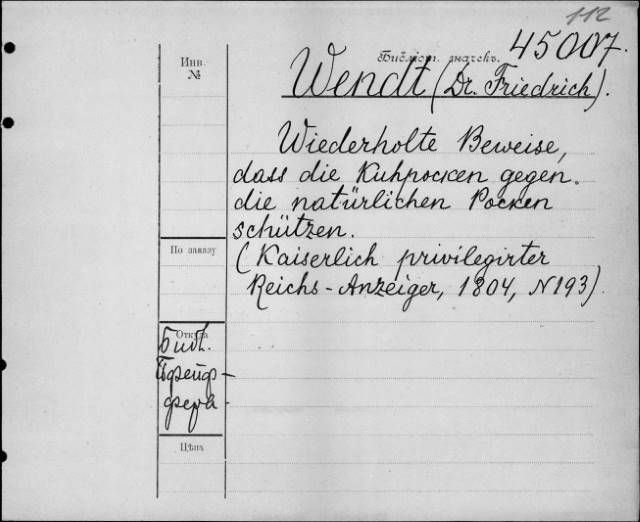 112
45007.
Библіот. значекъ.
Инв.
№
Wendt (Dr. Friedrich).
Wiederholte Beweise,
dass die Kuhpocken gegen
die natürlichen Pocken
schützen.
(Kaiserlich privilegirter
Reichs-Anzeiger, 1804, N 193)
По заказу
Откуда
Библ.
Пфейф-
фера
Цѣна